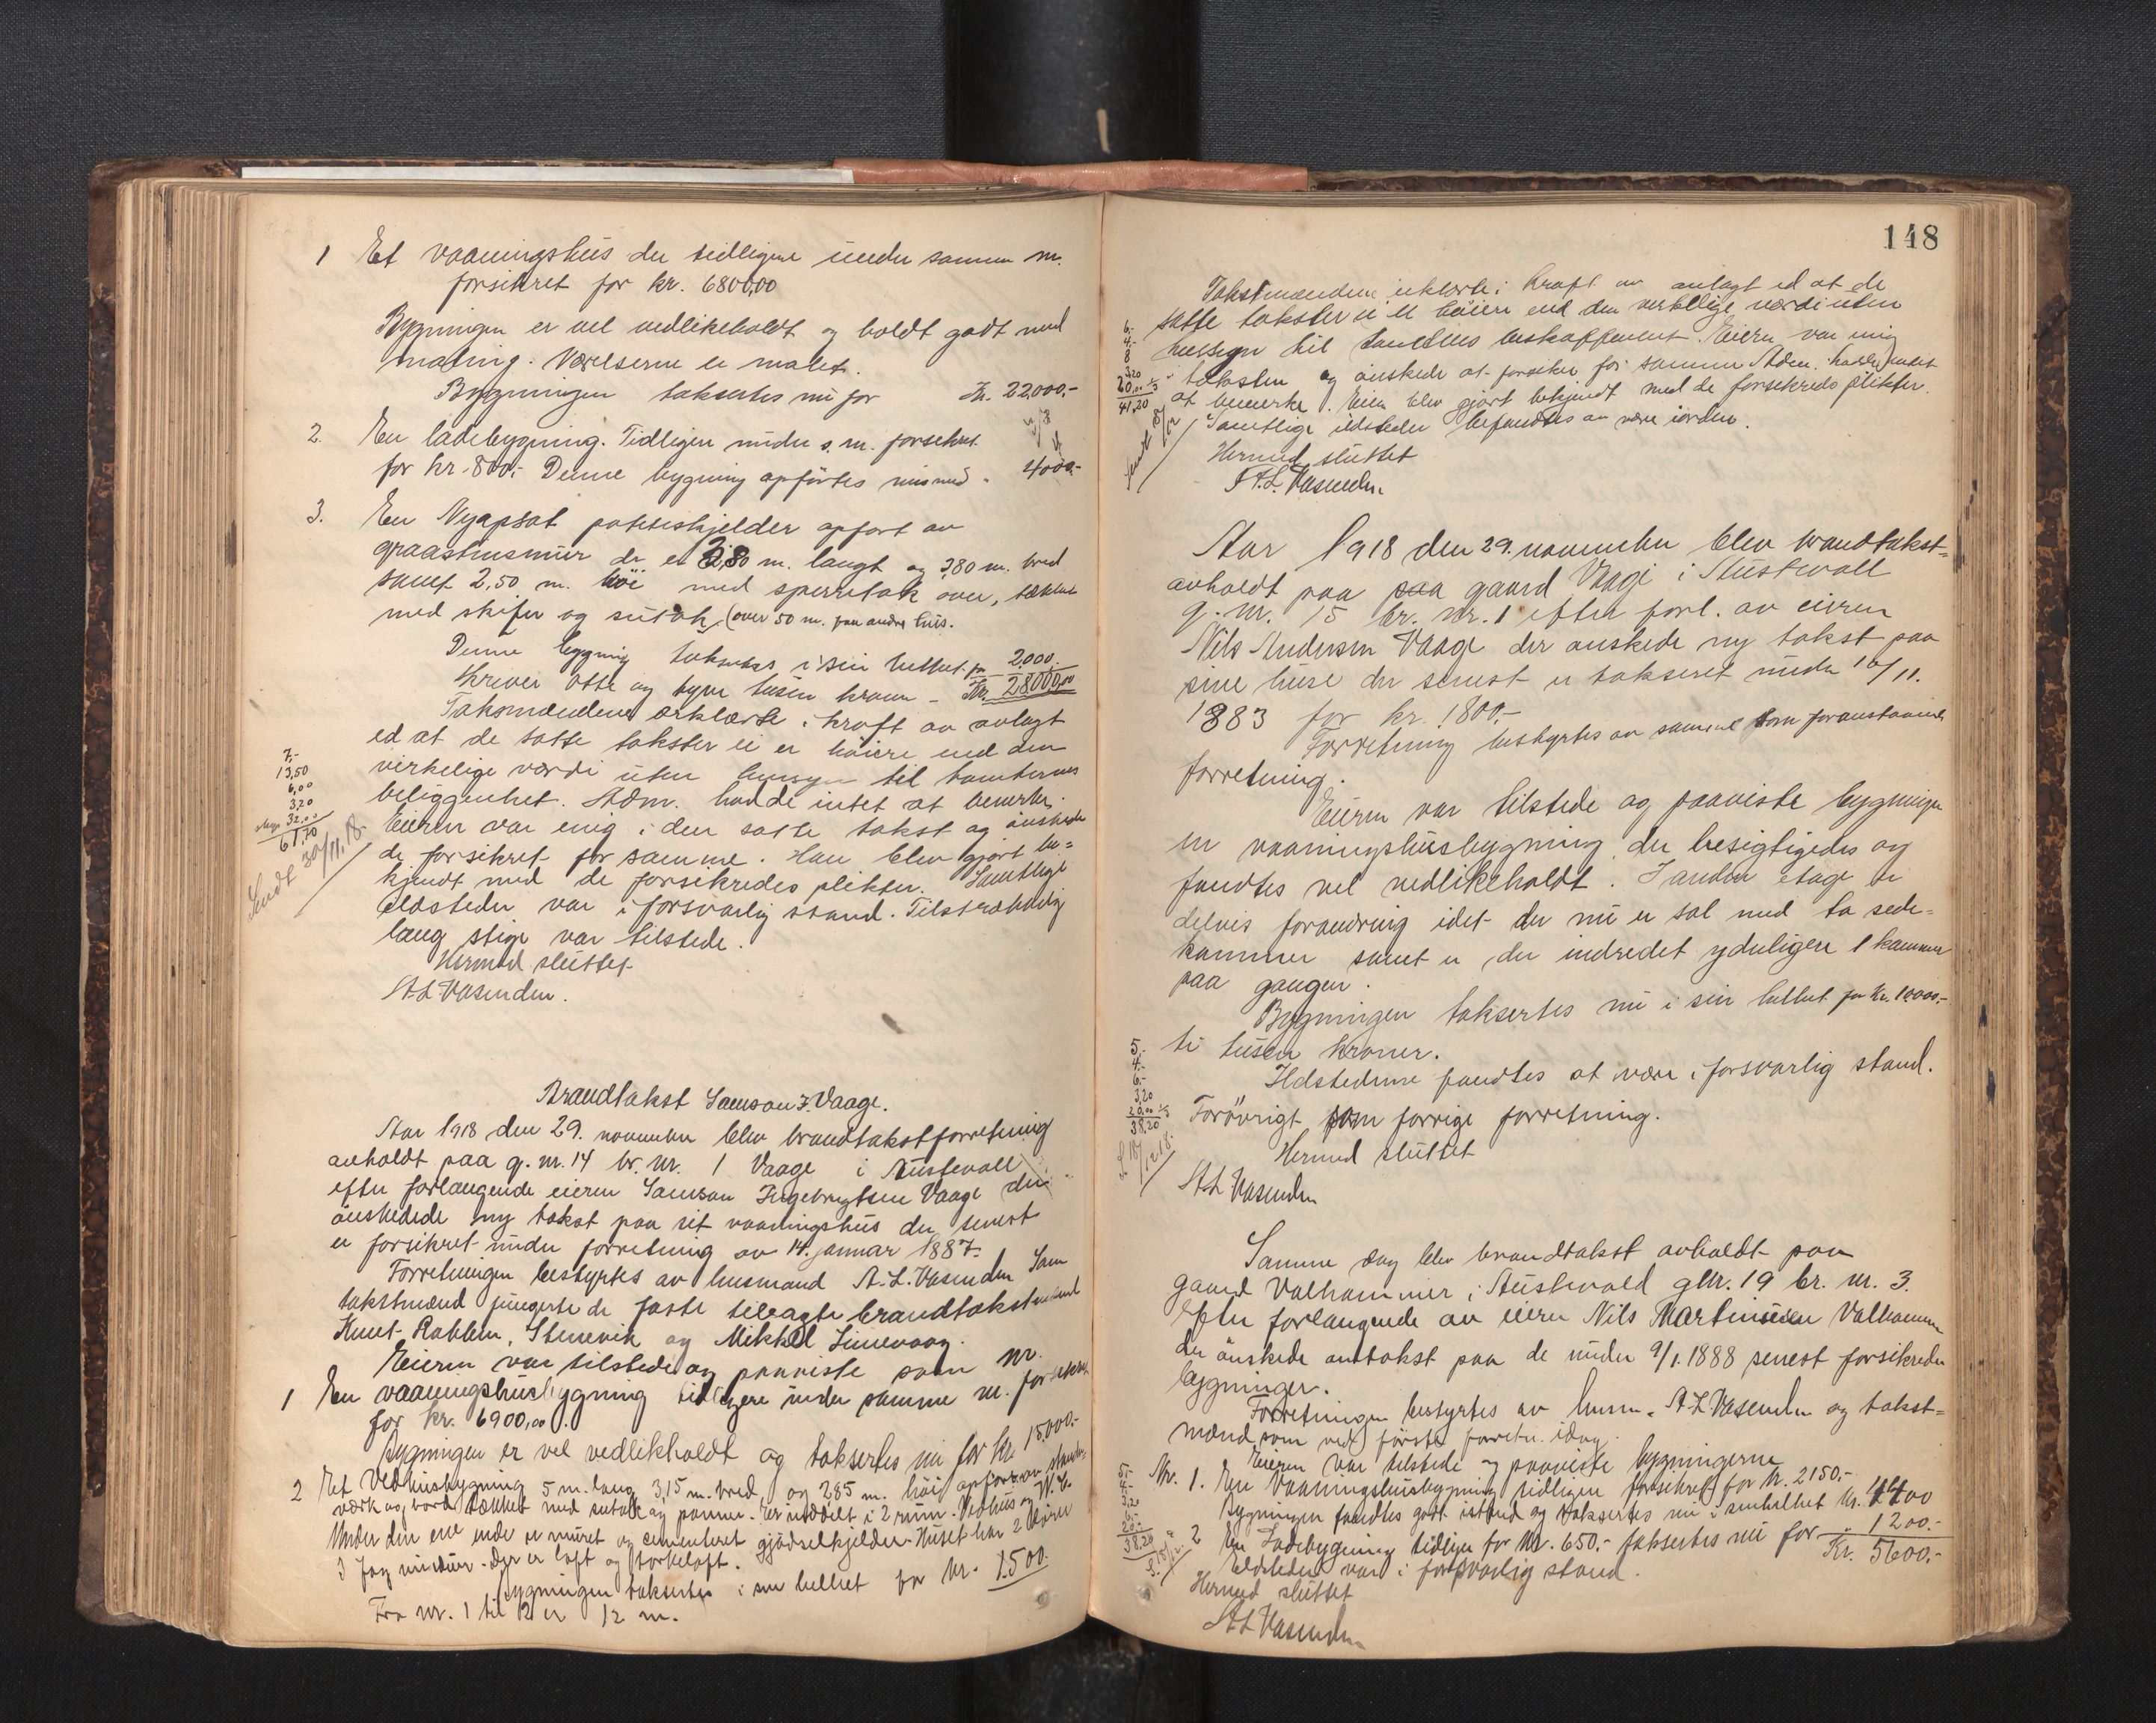 1 Et vaaningshus der tidligere under samme nr.
forsikret for kr. 6800,00
Bygningen er vel vedlikeholdt og holdt godt med
maling. Værelserne er malet.
Bygningen taksertes nu for Kr. 22,000.-
2. En ladebygning. Tidligere under s. nr. forsikret
for kr. 800.- Denne bygning opførtes nu med - 4000.-
3. En Nyopsat potetskjelder opført av
graastensmur der er 3,80 m. langt og 3,80 m. bred
samt 2,50 m. høi med sperretak over, tækket
med skifer og sutak, (over 50 m. fra andre hus.
Denne bygning taksertes i sin helhet for 2,000.-
Skriver otte og tyve tusen kroner - Kr. 28000,00
Taksmændene erklærte i kraft av avlagt
ed at de satte takster ei er høiere end den
virkelige værdi uten hensyn til tomternes
beliggenhet. Adm. hadde intet at bemerke.
Eieren var enig i den satte takst og ønskede
de forsikret for samme. Han blev gjort be=
kjendt med de forsikredes plikter. Samtlige
ildsteder var i forsvarlig stand. Tilstrækkelig
lang stige var tilstede.
Hermed sluttet
A.L. Vasenden.
7.-
13,50
6,00
3,20
32.00
61,70
Sendt 30/11.18.
Brandtakst Samson I. Vaage.
Aar 1918 den 29. november blev brandtakstforretning
avholdt paa g. nr. 14 br. nr. 1 Vaage i Austevold
efter forlangende eieren Samson Ingebrygtsen Vaage der
ønskedede ny takst paa sit vaaningshus der senest
er forsikret under forretning av 14. januar 1887.
Forretningen bestyrtes av lensmand A. L. Vasenden Som
takstmænd fungerte de faste tilvagte brandtakstmænd
Knut Rabben, Stenevik og Mikkel Linevaag.
Eieren var tilstede og paaviste som nr.
1 En vaaningshusbygning tidligere under samme nr. forsikret
for kr. 6900,00.
Bygningen er vel vedlikholdt og taksertes nu for kr. 15,000.-
2 Et Vedhusbygning 5 m. lang 3,15 m. bred og 2,85 m. høi opført av stander
værk og bord tækket med sutak og panner. Er inddelt i 2 rum. Vedhus og W.C.
Under den ene ende er muret og cementeret gjødselkjelder. Huset har 2 døre
3 fag vinduer. Der er loft og tørkeloft.
Bygningen taksertes i sin helhet for kr. 1500.-
Fra nr. 1 til 2 er 12 m.
148
Takstmændene erklærte i kraft av avlagt ed at de
satte takster ei er høiere end den verkelige værdi uten
hensyn til tomternes beskaffenhet. Eieren var enig
i taksten og ønskede at forsikre for samme. Adm. hadde intet
at bemerke. Eieren blev gjort bekjendt med de forsikredes plikter.
Samtlige ildsteder befandtes at være i orden.
Hermed sluttet
A.L. Vasenden.
6.-
4.-
8
3,20
20,00 1/3
41,20
Sendt 18/12
Aar 1918 den 29. november blev brandtakst=
avholdt paa paa gaard Vaage i Austevold
g. nr. 15 br. nr. 1 efter forl. av eieren
Nils Andersen Vaage der ønskede ny takst paa
sine huse der senest er takseret under 16/11.
1883 for kr. 1800.-
Forretning bestyrtes av samme som foranstaaende
forretning.
Eieren var tilstede og paaviste bygningen
en vaaningshusbygning der besigtigedes og
fandtes vel vedlikeholdt. I anden etage er
delvis forandring idet der nu er sal med to side=
kammer samt er der indredet yderligere 1 kammer
paa gangen.
Bygningen taksertes nu i sin helhet for Kr. 10000.-
ti tusen kroner.
Ildstederne fandtes at være i forsvarlig stand.
Forøvrigt som forrige forretning.
Hermed sluttet
A.L. Vasenden
5.-
4.-
6.-
3,20
20,00 1/3
38,20
S 18/12.18.
Samme dag blev brandtakst avholdt paa
gaard Valhammer i Austevold gnr. 19 br. nr. 3.
Efter forlangende av eieren Nils Martinussen Valhammer
der ønskede omtakst paa de under 9/1.1888 senest forsikrede
bygninger.
Forretningen bestyrtes av lensm. A.L Vasenden og takst=
mænd som ved første forretn. idag.
Eieren var tilstede og paaviste bygningerne
Nr. 1. En Vaaningshusbygning tidligere forsikret for kr. 2150.-
Bygningen fandtes godt istand og taksertes nu i sin helhet kr. 4400
2 En Ladebygning tidligere for kr. 650.- taksertes nu for - " 1200.-
Kr. 5600.-
Ildstedene var i forsvarlig stand.
Hermed sluttet
A.L Vasenden
5.-
4.-
3,20
6.-
20.-
38,20
S. 18/12.